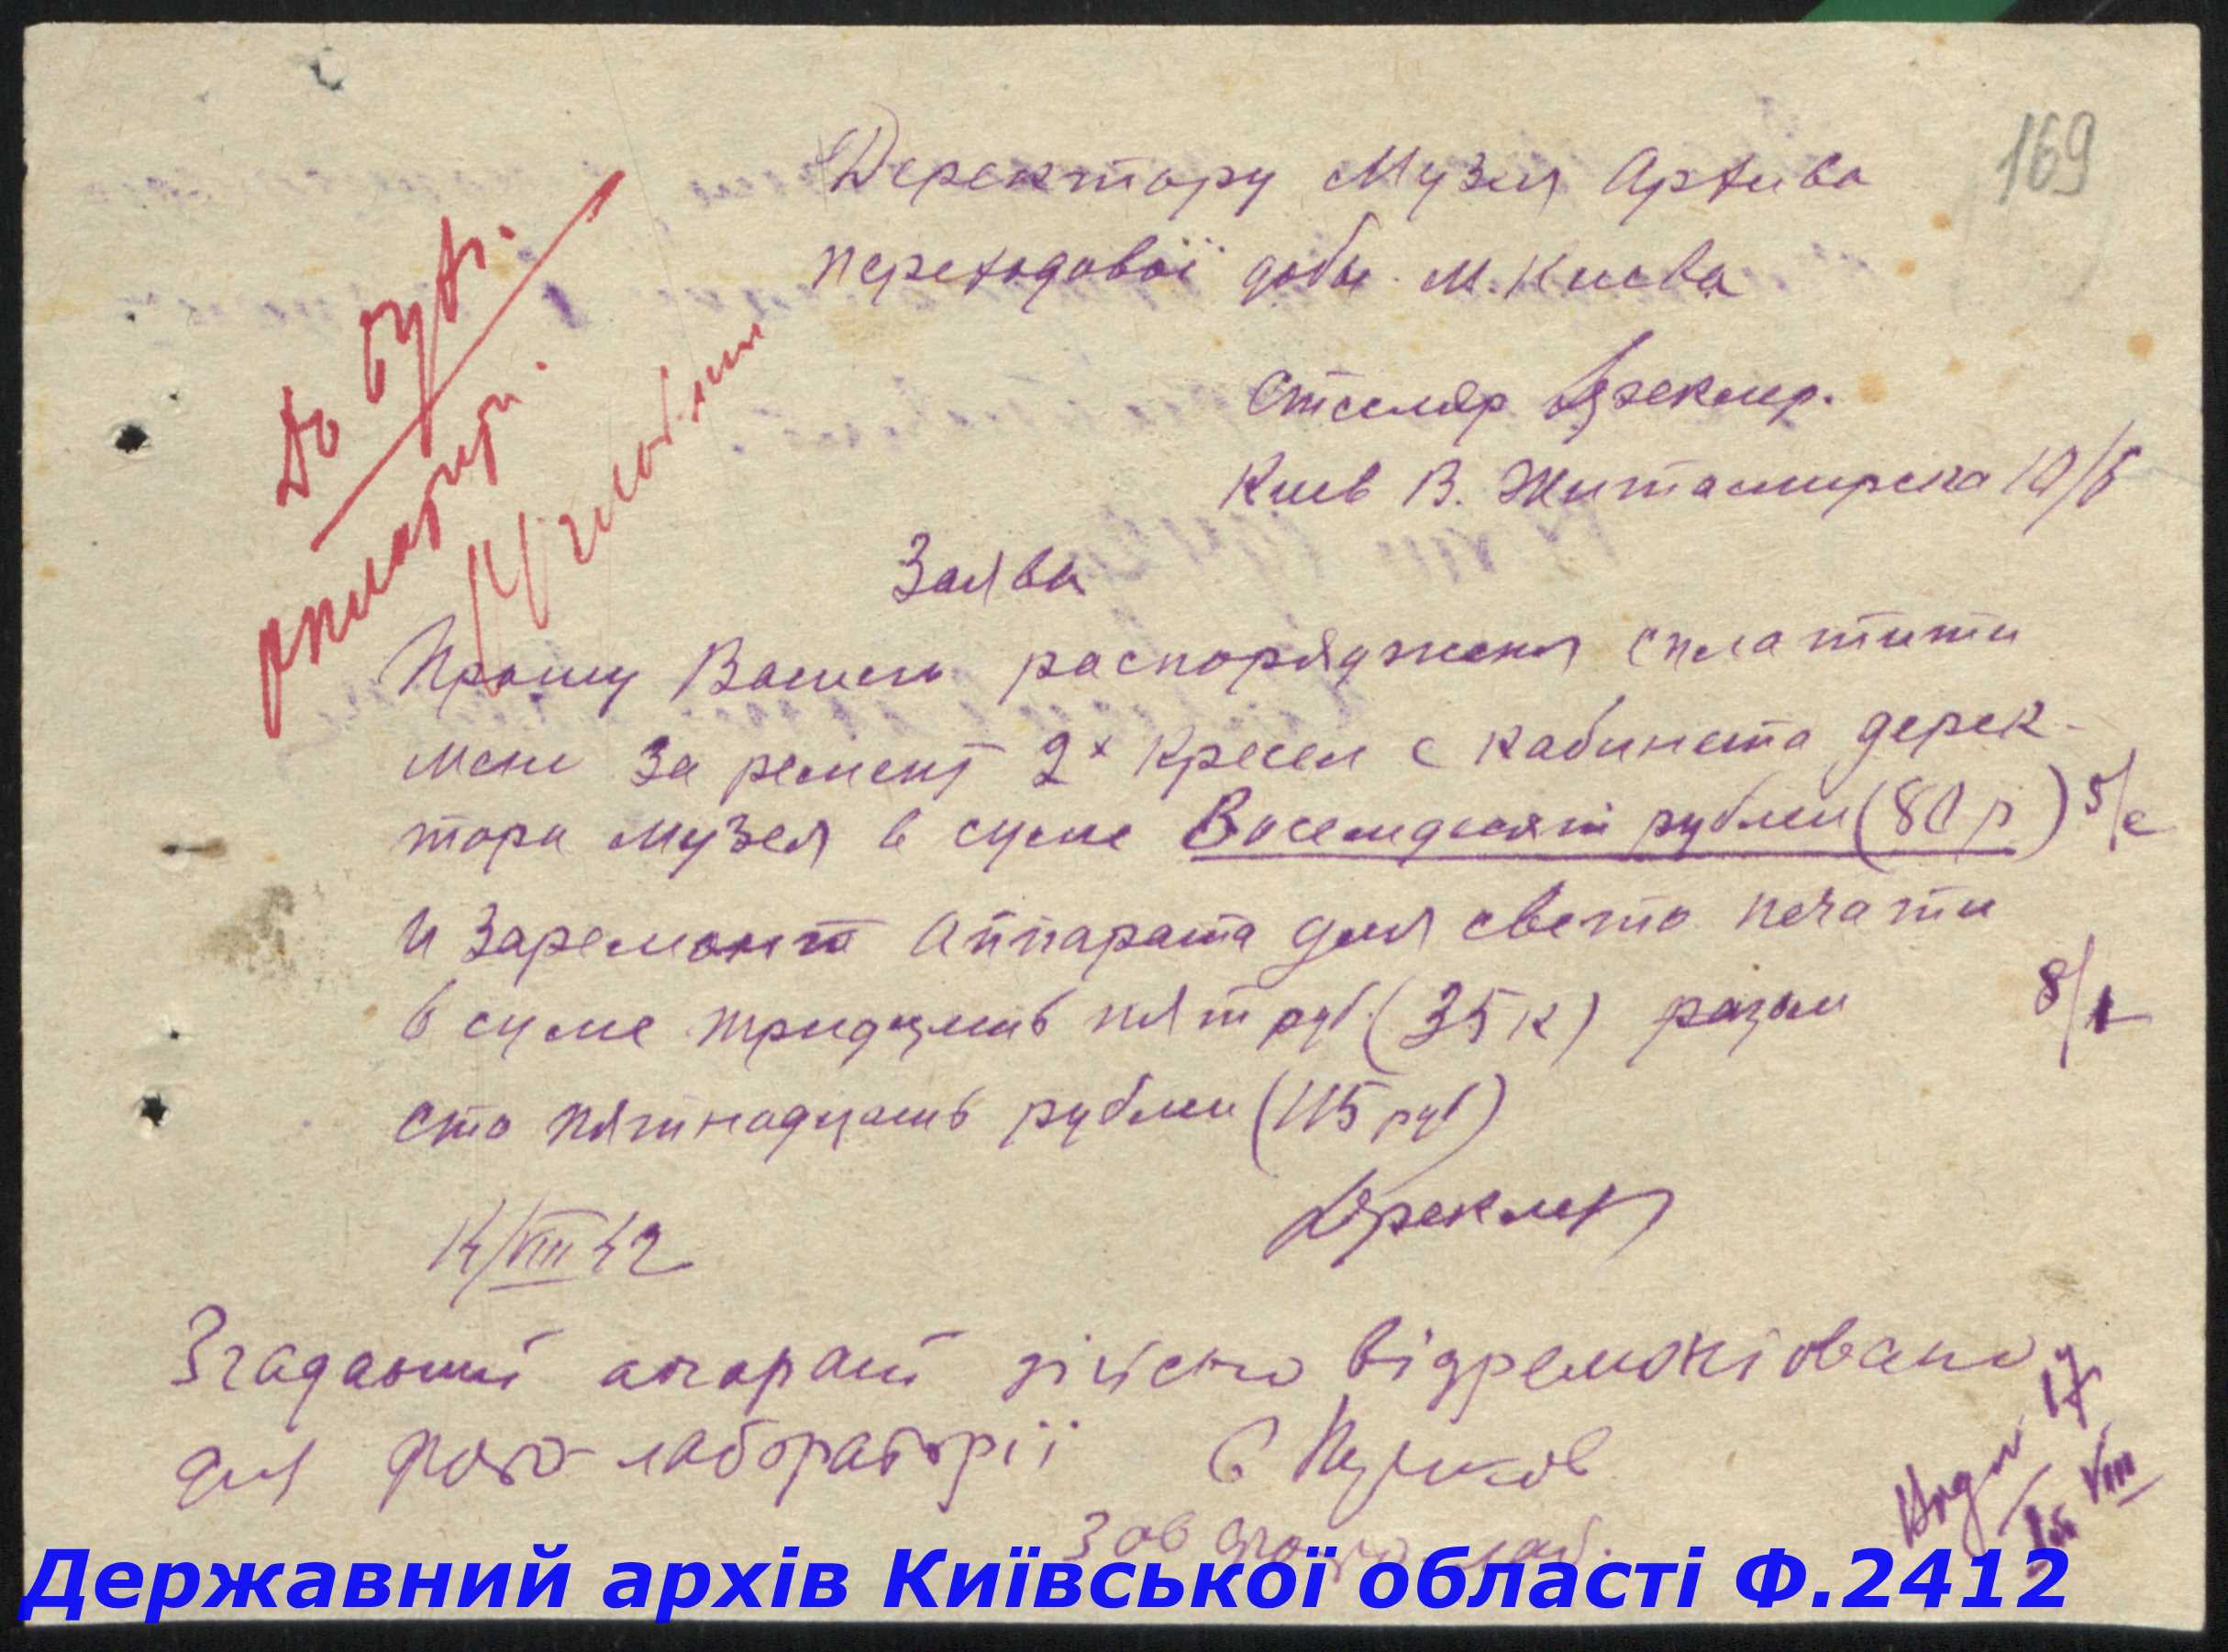 169
Деректору Музея Архива
переходової добы м. Киева
Столяр Дреклер.
Киев В. Житомирска 19/6
До бухг.
оплатити.
Заява
Прошу Вашего распорядженя сплатити
мене за ремонт 2х кресел с кабинета дерек-
тора музея в суме Восемдесят рублей (80 р) 5/с
и заремонт аппарата для свето печати
в суме тридцать пят руб. (35 к) разом
8/1
сто пятнадцать рублей (115 руб)
Дреклер
14/VIII 42
Згаданий апарат дійсно відремонтовано
для фото-лабораторії
Зав фото-лаб.
17
VIII
Державний архів Київської області Ф.2412